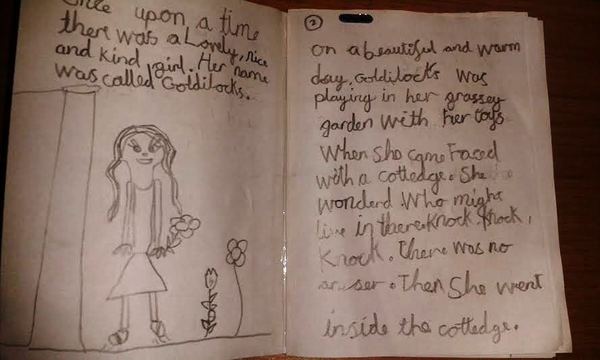 Once upon a time
there was a Lovely, nice
and kind girl. Her name
was called Goldilocks.
2
on a beautiful and warm
day, Goldilocks was
playing in her grassey
garden with her toys
When She came Faced
with a cottedge. She
wonderd who might
live in there. Knock, Knock,
Knock. There was no
anser. Then She went
inside the cottedge.